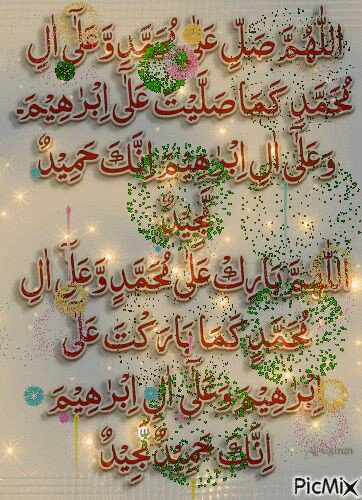 اَللّٰهُمَّ صَلِّ عَلٰى مُحَمَّدٍ وَّعَلٰٓى اٰلِ
مُحَمَّدٍ كَمَا صَلَّيْتَ عَلٰٓى اِبْرٰهِيْمَ
وَعَلٰٓى اٰلِ اِبْرٰهِيْمَ اِنَّكَ حَمِيْدٌ
مَّجِيْدٌ
اَللّٰهُمَّ بَارِكْ عَلٰى مُحَمَّدٍ وَّعَلٰٓى اٰلِ
مُحَمَّدٍ كَمَا بَارَكْتَ عَلٰٓى
اِبْرٰهِيْمَ وَعَلٰٓى اٰلِ اِبْرٰهِيْمَ
اِنَّكَ حَمِيْدٌ مَّجِيْدٌ
PicMix